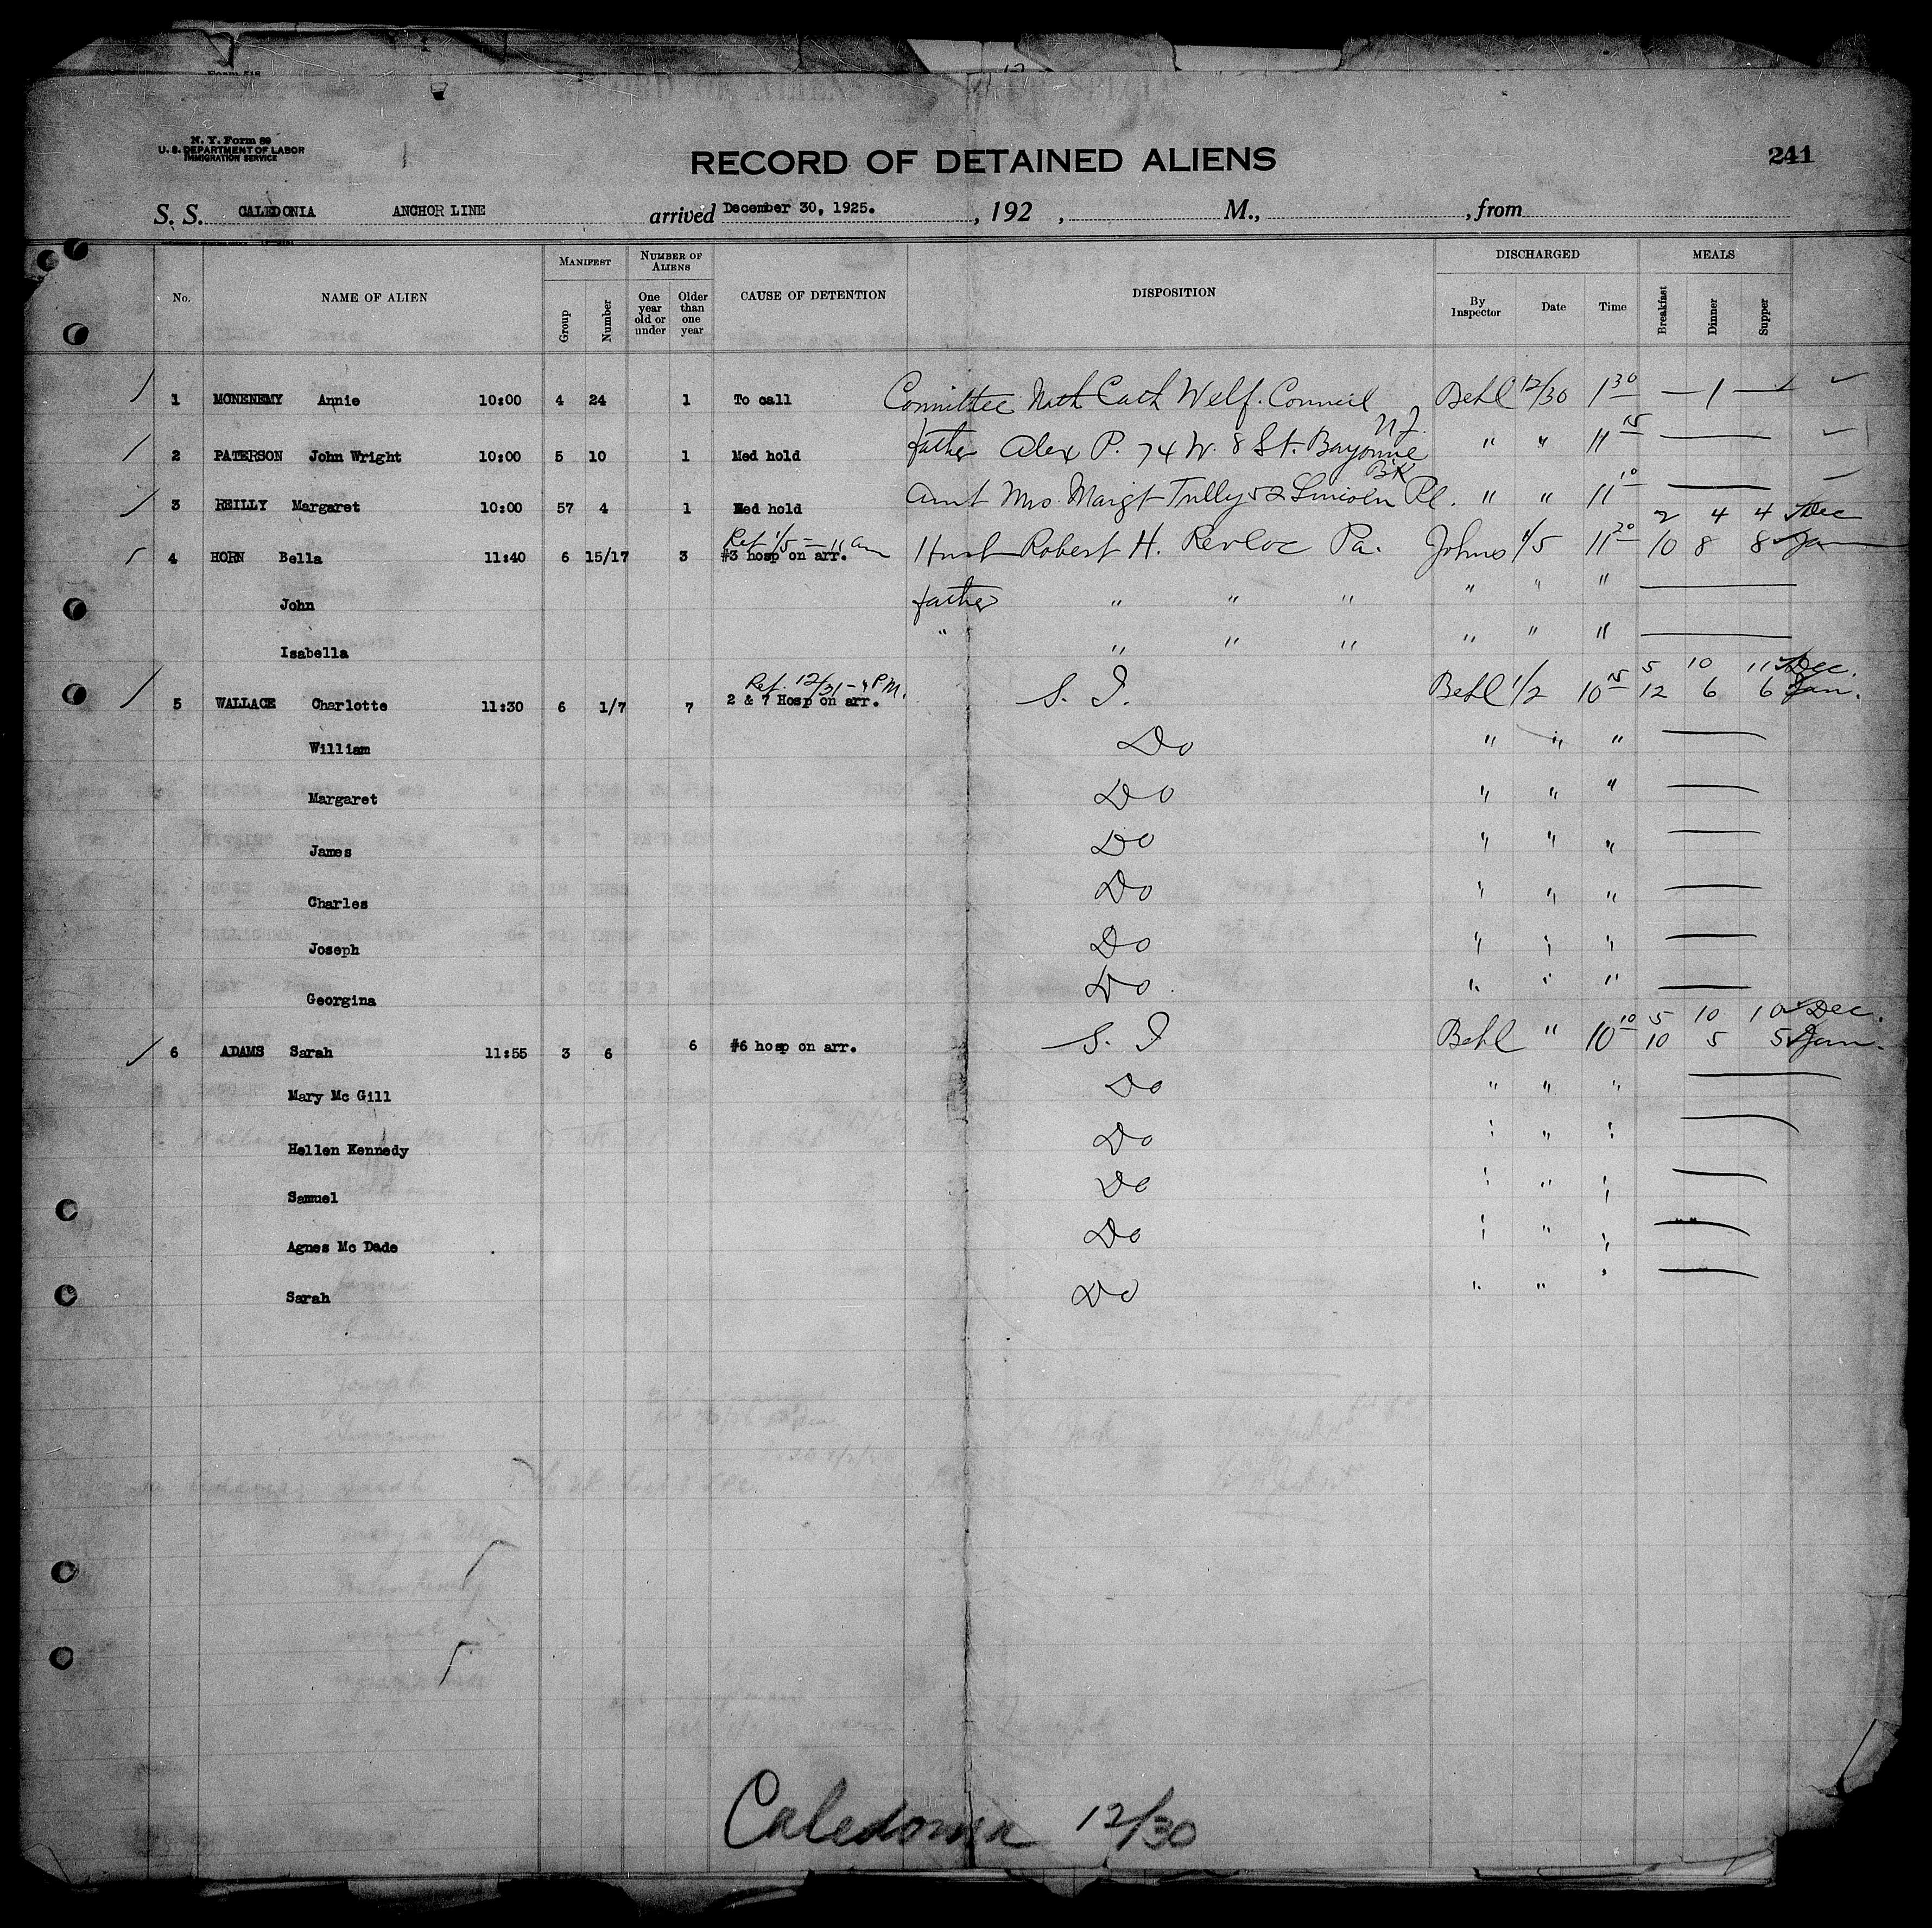 N. Y. Form 89
U. S. DEPARTMENT OF LABOR
IMMIGRATION SERVICE
RECORD OF DETAINED ALIENS
241
S. S. CALEDONIA ANCHOR LINE arrived December 30, 1925. , 192 , M., , from
MANIFEST NUMBER OF ALIENS DISCHARGED MEALS
No. NAME OF ALIEN Group Number One year old or under Older than one year CAUSE OF DETENTION DISPOSITION By Inspector Date Time Breakfast Dinner Supper
1 MONENEMY Annie 10:00 4 24 1 To call Committee Nath Cath Welf. Council Behl 12/30 1 30 — 1 —
N J.
2 PATERSON John Wright 10:00 5 10 1 Med hold father Alex P. 74 W. 8 St. Bayonne " " 11 15
BK
3 REILLY Margaret 10:00 57 4 1 Med hold Aunt Mrs. Margt Tully 52 Lincoln Pl. " " 11 10
Ret 1/5 = 11 am 2 4 4 Dec
4 HORN Bella 11:40 6 15/17 3 #3 hosp on arr. Husb Robert H. Revloc Pa. Johns 1/5 11 20 10 8 8 Jan
John father " " " " " "
Isabella " " " " " " "
Ret. 12/31 - 4 P.M. 5 10 11 Dec.
5 WALLACE Charlotte 11:30 6 1/7 7 2 & 7 Hosp on arr. S. I. Behl 1/2 10 15 12 6 6 Jan.
William Do " " "
Margaret Do " " "
James Do " " "
Charles Do " " "
Joseph Do " " "
Georgina Do " " "
5 10 10 Dec.
6 ADAMS Sarah 11:55 3 6 6 #6 hosp on arr. S. I Behl " 10 10 10 5 5 Jan.
Mary Mc Gill Do " " "
Hellen Kennedy Do " " "
Samuel Do " " "
Agnes Mc Dade Do " " "
Sarah Do " " "
Caledonia 12/30